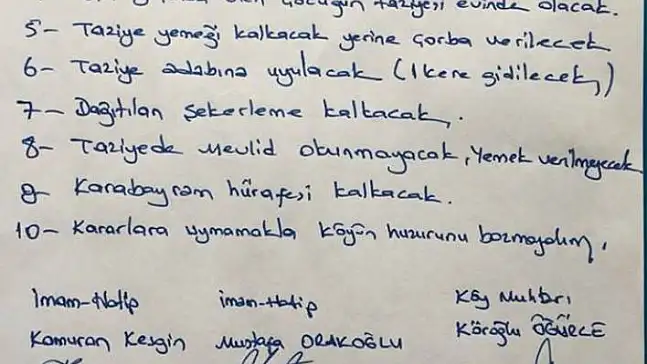 olan çocuğun taziyesi evinde olacak.
5- Taziye yemeği kalkacak yerine çorba verilecek
6- Taziye adabına uyulacak (1 kere gidilecek)
7- Dağıtılan şekerleme kalkacak.
8- Taziyede mevlid okunmayacak, Yemek verilmeyecek
9- Karabayram hürafesi kalkacak.
10- Kararlara uymamakla köyün huzurunu bozmayalım.
İmam-Hatip imam-Hatip Köy Muhtarı
Kamuran Kesgin Mustafa ORAKOĞLU Köroğlu ÖĞÜRCE